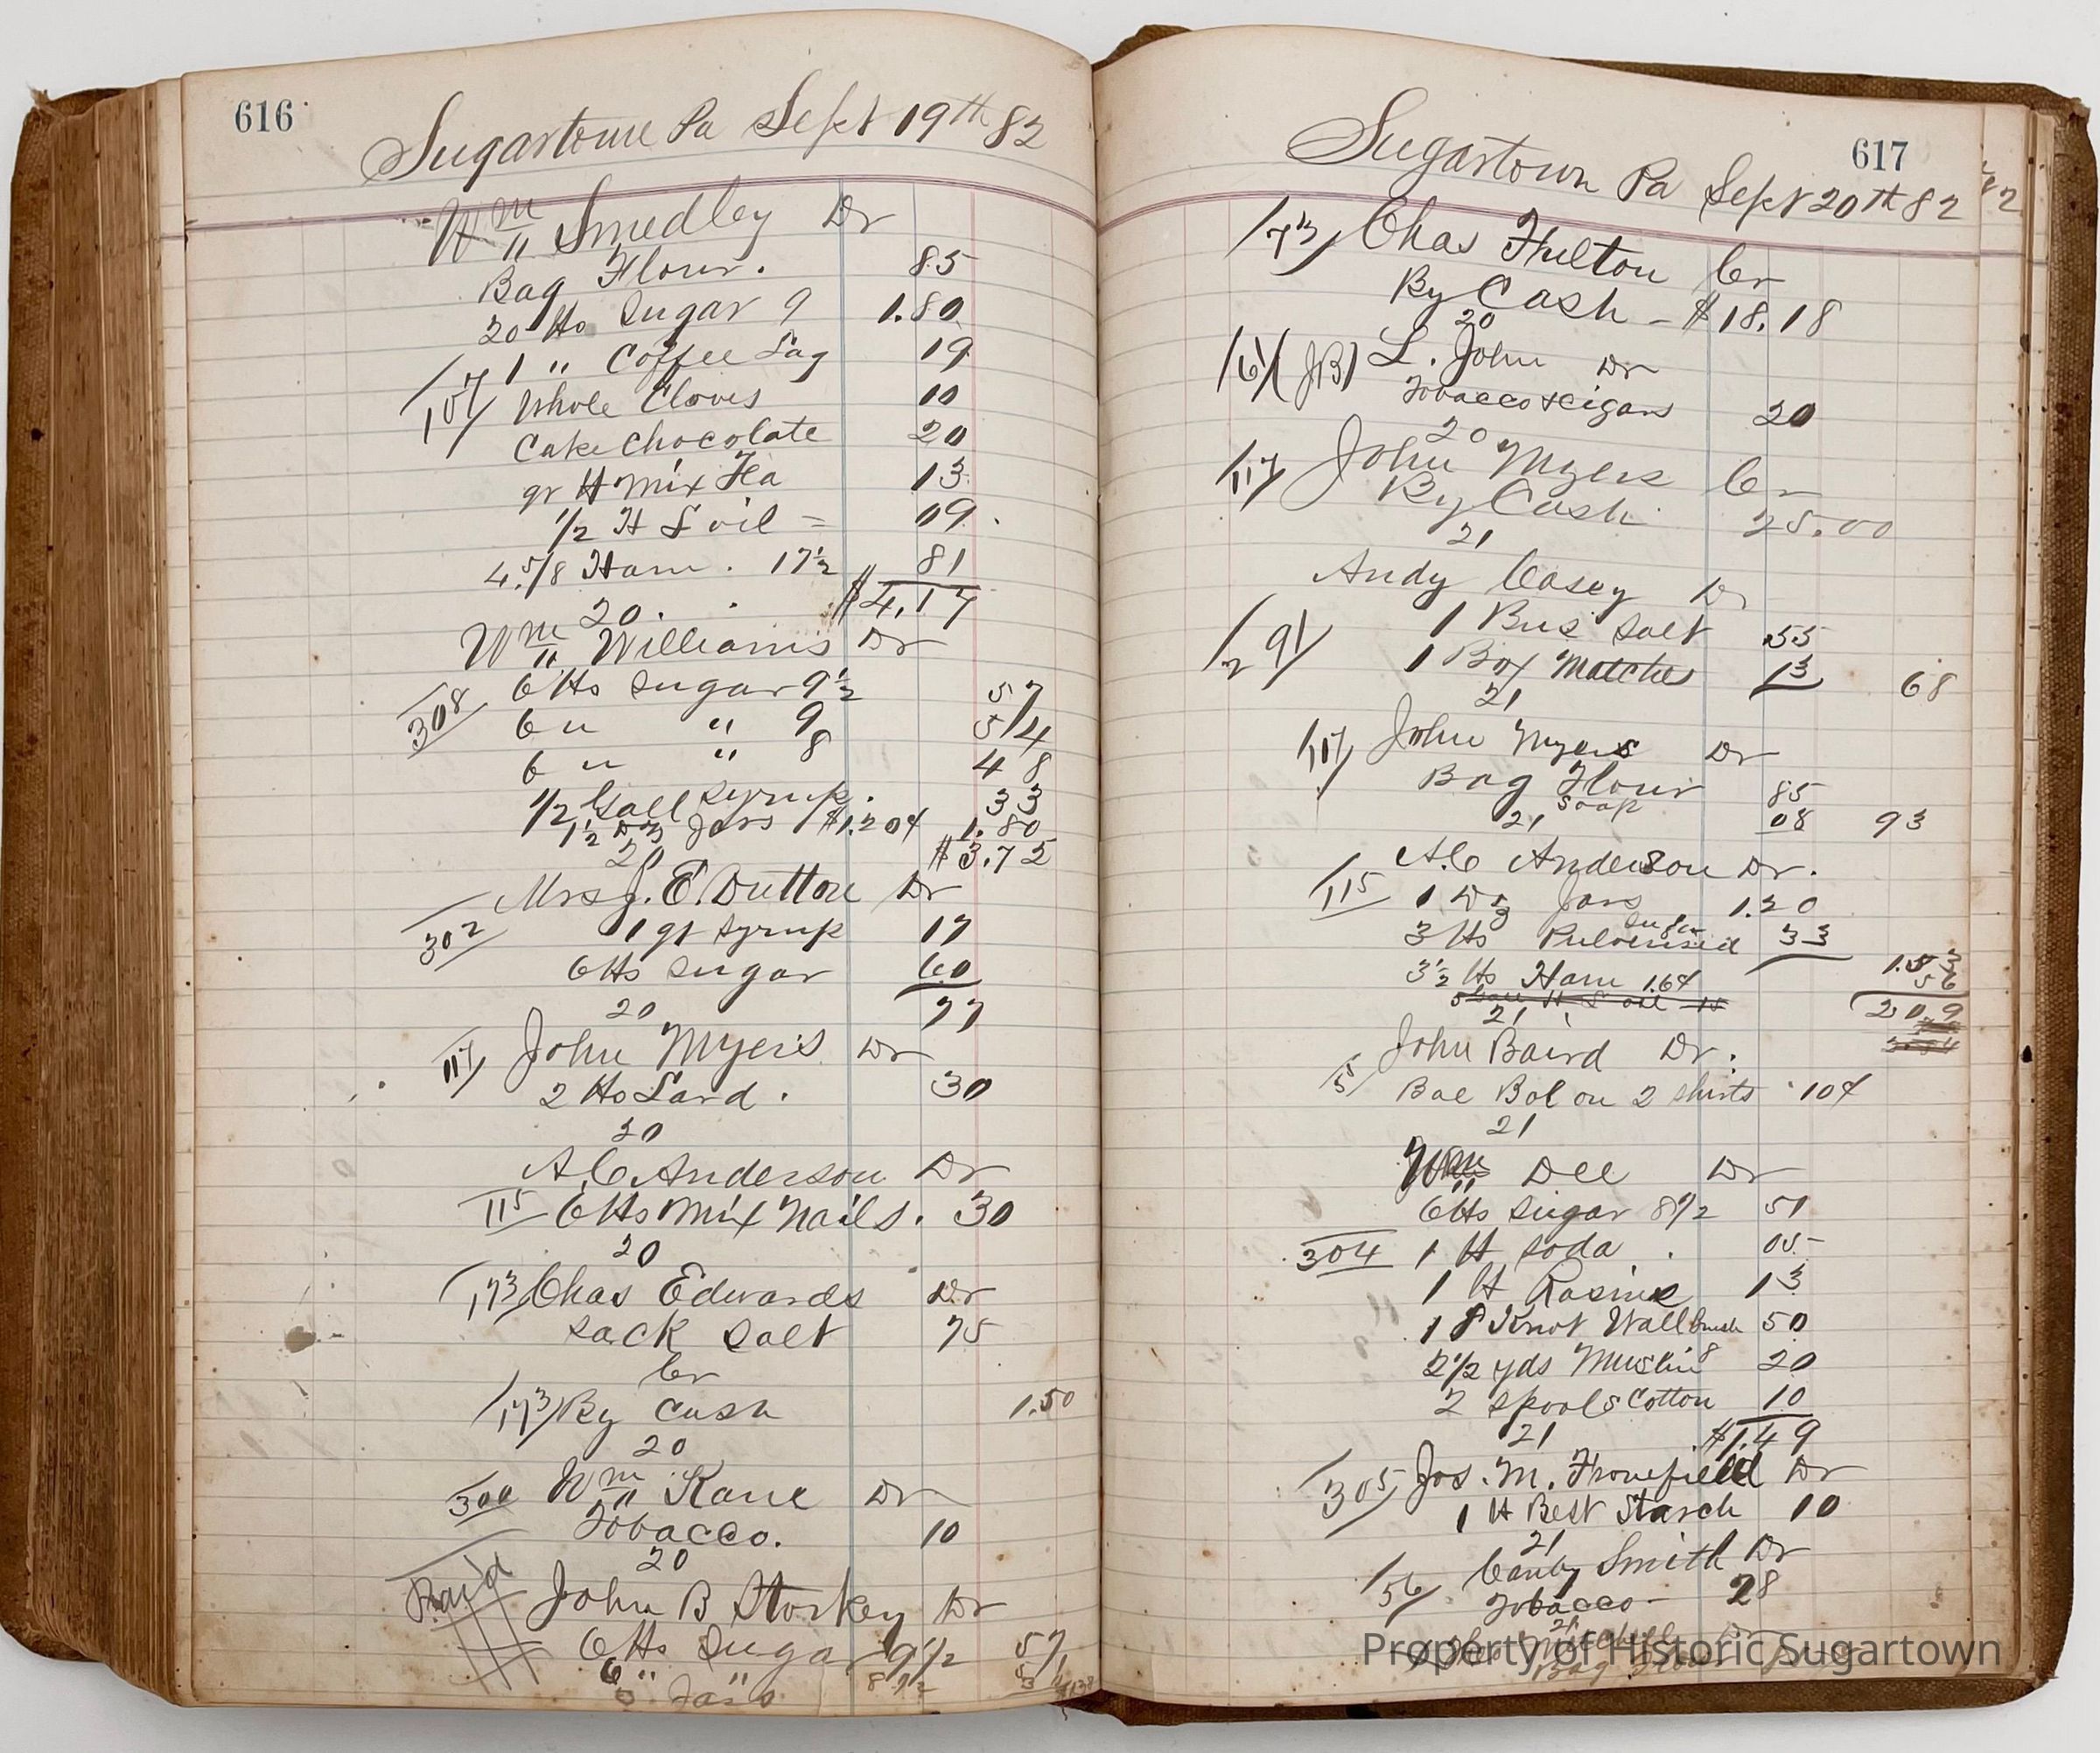 616
Sugartown Pa Sept 19th 82
Wm Smedley Dr
Bag Flour. 85
20 lbs Sugar 9 1.80
1 " Coffee Lag 19
107 Whole Cloves 10
Cake Chocolate 20
qr lb Mix Tea 13
1/2 lb S oil = 09
4.5/8 Ham. 17½ 81
$4.17
20.
Wm Williams Dr
308 6 lbs Sugar 9½ 57
6 " " 9 54
6 " " 8 48
1/2 Gall Syrup. 33
1½ Dz Jars $1.20¢ 1.80
20 $3.72
Mrs J. E. Dutton Dr
302 1 qt Syrup 17
6 lbs Sugar 60
20 77
117 John Myers Dr
2 lbs Lard. 30
20
A. C. Anderson Dr
115 6 lbs Mix Nails. 30
20
173 Chas Edwards Dr
Sack Salt 75
Cr
173 By Cash 1.50
20
300 Wm Kane Dr
Tobacco. 10
20
Paid John B Storkey Dr
6 lbs Sugar 9½ 57
6 " "
Jars
617
Sugartown Pa Sept 20th 82
173 Chas Fulton Cr
By Cash - $18.18
20
161 (JB) L. John Dr
Tobacco & Cigars 20
20
117 John Myers Cr
By Cash 25.00
21
Andy Casey Dr
291 1 Bus Salt .55
1 Box Matches 13 68
21
117 John Myers Dr
Bag Flour 85
Soap 08 93
21
A. C. Anderson Dr.
115 1 Dz Jars 1.20
3 lbs Pulverised Sugar 33
1.53
3½ lbs Ham 16¢ 56
2.09
21
John Baird Dr.
55 Bae Bal on 2 shirts 10¢
21
Wm Dee Dr
6 lbs Sugar 8½ 51
304 1 lb Soda. 05
1 lb Rasins 13
1 8 Knot Wall brush 50
2½ yds Muslin 8 20
2 Spools Cotton 10
21 $1.49
305 Jos. M. Fronefield Dr
1 lb Best Starch 10
21
56 Canby Smith Dr
Tobacco - 28
21
Mitchell Dr
Bag Flour
Property of Historic Sugartown